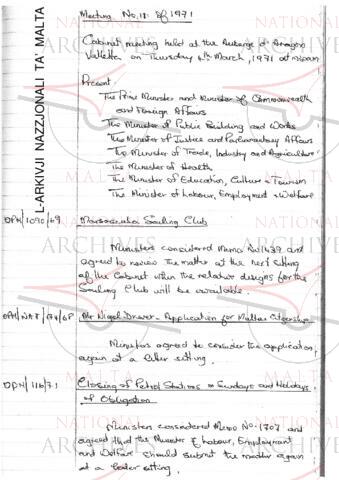 Meeting No. 18 of 1971
Cabinet meeting held at the Auberge d'Aragon
Valletta on Thursday 4th March, 1971 at
Present.
The Prime Minister and Minister of Commonwealth
and Foreign Affairs
The Minister of Public Building and Works
The Minister of Justice and Parliamentary Affairs
The Minister of Trade, Industry and Agriculture
The Minister of Health
The Minister of Education, Culture & Tourism
The Minister of Labour, Employment & Welfare
OPM/1090/69 Marsaxlokk Sailing Club
Ministers considered Memo No 1439 and
agreed to review the matter at the next sitting
of the Cabinet when the relative designs for the
Sailing Club will be available.
Mr Nigel - Application for Maltese Citizenship
Ministers agreed to consider the application
again at a later sitting.
OPM/116/71 Closing of Petrol Stations on Sundays and Holidays
of Obligation
Ministers considered Memo No. 1707 and
agreed that the Minister of Labour, Employment
and Welfare should submit the matter again
at a later sitting.
L-ARKIVJI NAZZJONALI TA' MALTA
NATIONAL
ARCHIVES
MALTA